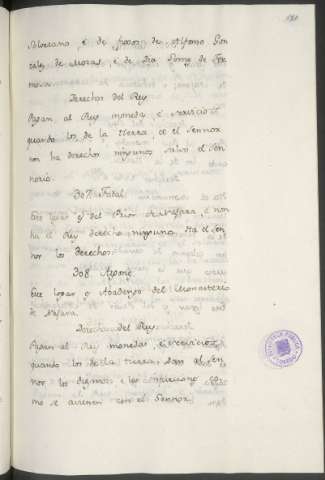 Solorzano, é de fijosos de Alfonso Gon
zales de Moras, é de Dia Gomez de
Derechos del Rey
Pagan al Rey moneda é servicios
quando los de la tierra é el Sennor
non ha derechos ningunos salvo el Son
norio.
307. Fatal.
Este logar es del Prior de Nafara, é non
ha el Rey derecho ninguno. Ha el Sen
nor los derechos.
308.
Este logar es Abadengo del Monasterio
de Nafara.
Derechos del Rey
Pagan al Rey monedas, é servicios
quando los de la tierra, dan al Sen
nor los diezmos, é las co
mo se avienen con el Sennor.